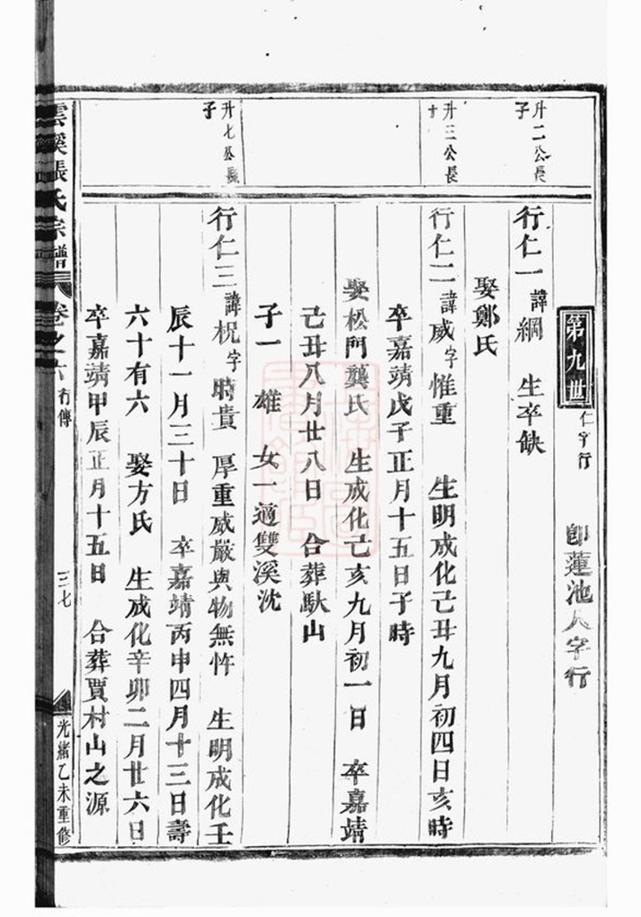 第九世 仁字行 即蓮池人字行
升二公長子
行仁一 諱綱 生卒缺
娶鄭氏
升三公長
行仁二 諱威字惟重 生明成化己丑九月初四日亥時
卒嘉靖戊子正月十五日子時
娶松門龔氏 生成化己亥九月初一日 卒嘉靖
己丑八月廿八日 合葬馱山
子一 雄 女一適雙溪沈
升七公長子
行仁三 諱柷字時貴 厚重威嚴與物無忤 生明成化壬
辰十一月三十日 卒嘉靖丙申四月十三日壽
六十有六 娶方氏 生成化辛卯二月廿六日
卒嘉靖甲辰正月十五日 合葬賈村山之源
雲溪張氏宗譜 卷之六 行傳 三七 光緒乙未重修